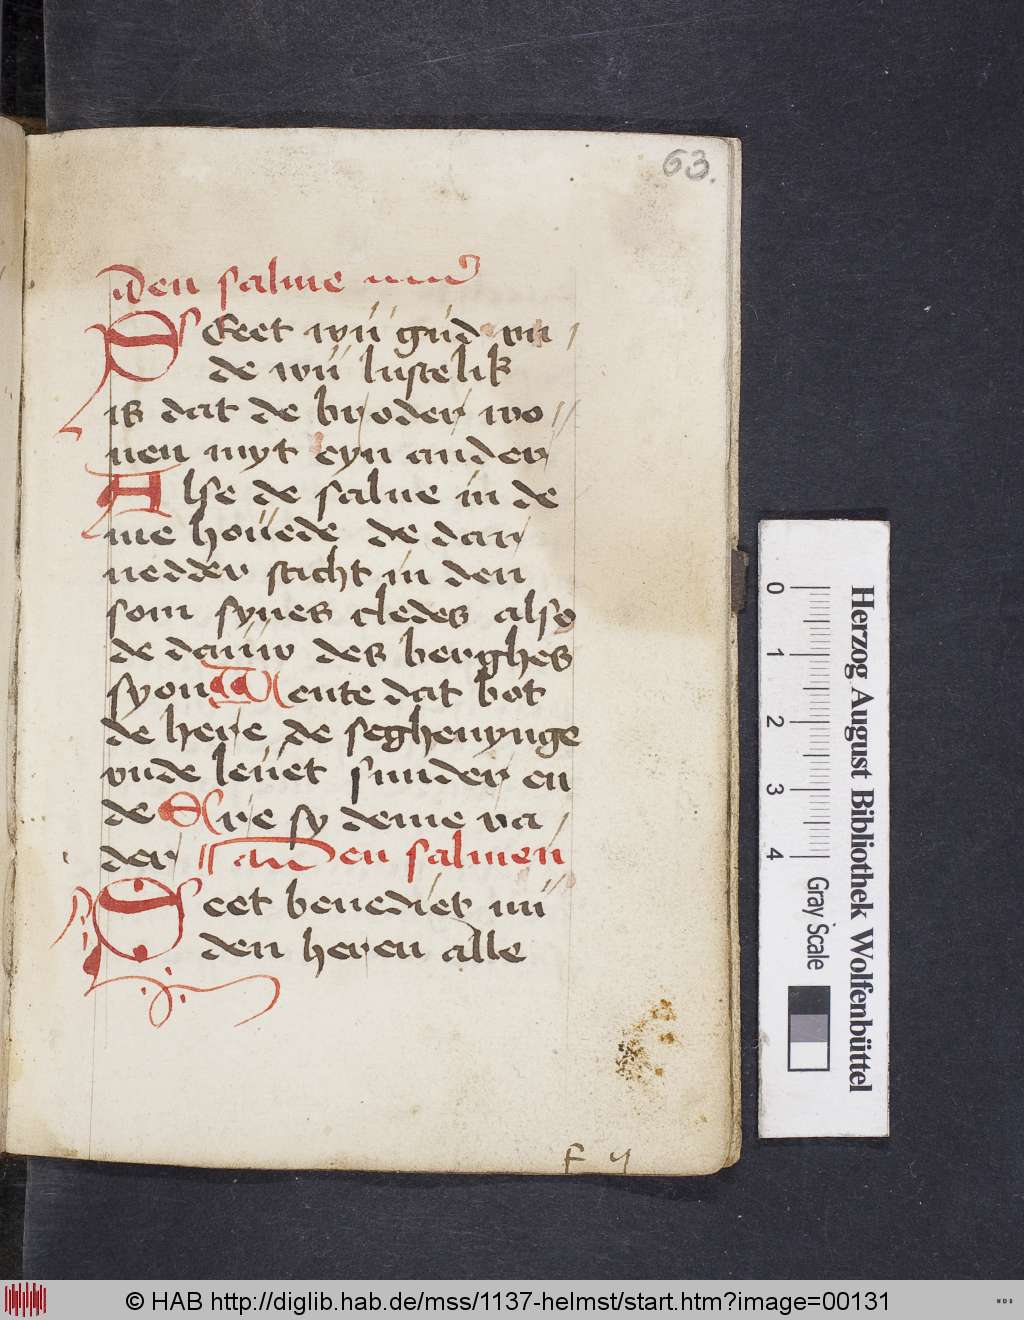 63.
Den salme
Seet wü güd vn
de wü lustelik
is dat de broder wo
nen myt eyn ander
Alse de salue in de
me höuede de dar
nedder sticht in den
som synes cledes also
de dauw des berghes
syon Wente dat bot
de here de seghenynge
vnde leuet sunder en
de Ere sy deme va
der den salmen
Seet benediet nü
den heren alle
f ij
Herzog August Bibliothek Wolfenbüttel
0 1 2 3 4
Gray Scale
© HAB http://diglib.hab.de/mss/1137-helmst/start.htm?image=00131